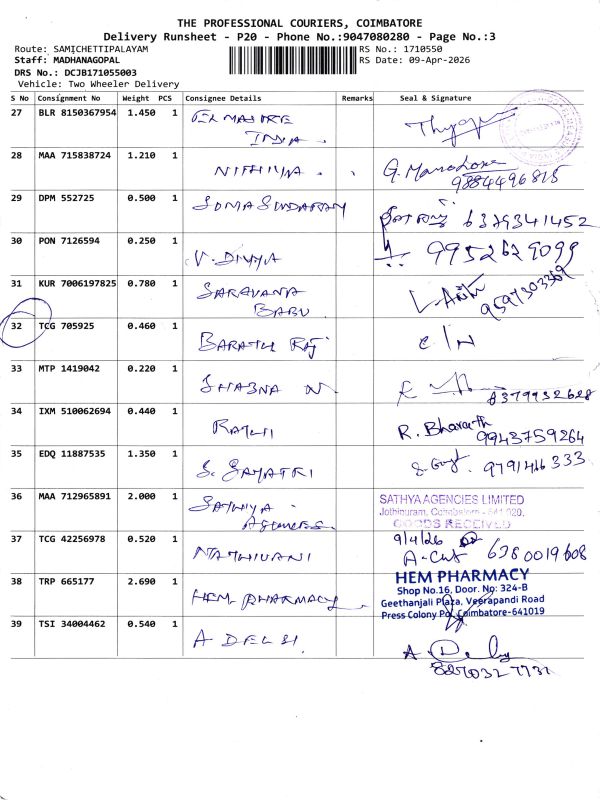 THE PROFESSIONAL COURIERS, COIMBATORE
Delivery Runsheet - P20 - Phone No.:9047080280 - Page No.:3
Route: SAMICHETTIPALAYAM RS No.: 1710550
Staff: MADHANAGOPAL RS Date: 09-Apr-2026
DRS No.: DCJB171055003
Vehicle: Two Wheeler Delivery
S No Consignment No Weight PCS Consignee Details Remarks Seal & Signature
27 BLR 8150367954 1.450 1
28 MAA 715838724 1.210 1 NITHIYA
9884496815
29 DPM 552725 0.500 1 SOMASUNDARAM 6379341452
30 PON 7126594 0.250 1 V. DIVYA 9952629099
31 KUR 7006197825 0.780 1 SARAVANA
BABU 9597303369
32 TCG 705925 0.460 1 BARATH RAJ
33 MTP 1419042 0.220 1 SHABNA N 8379932628
34 IXM 510062694 0.440 1 R. Bharath
9943759264
35 EDQ 11887535 1.350 1 S. GAYATRI 9791466333
36 MAA 712965891 2.000 1 SATHYA AGENCIES
SATHYA AGENCIES LIMITED
Jothipuram, Coimbatore - 641 020.
GOODS RECEIVED
37 TCG 42256978 0.520 1 9/4/26
6380019608
38 TRP 665177 2.690 1 HEM PHARMACY
HEM PHARMACY
Shop No.16, Door. No: 324-B
Geethanjali Plaza, Veerapandi Road
Press Colony Po, Coimbatore-641019
39 TSI 34004462 0.540 1 A DELSI